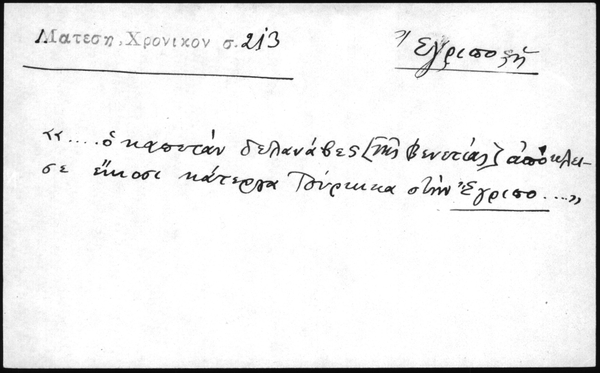 Ματεση, Χρονικον σ. 213
Ἔγριπο
«....ὁ καπετάν δελανάβες [τῆς Βενετίας] ἀπόκλει-
σε εἴκοσι κάτεργα Τούρκικα στὴν Ἔγριπο....»